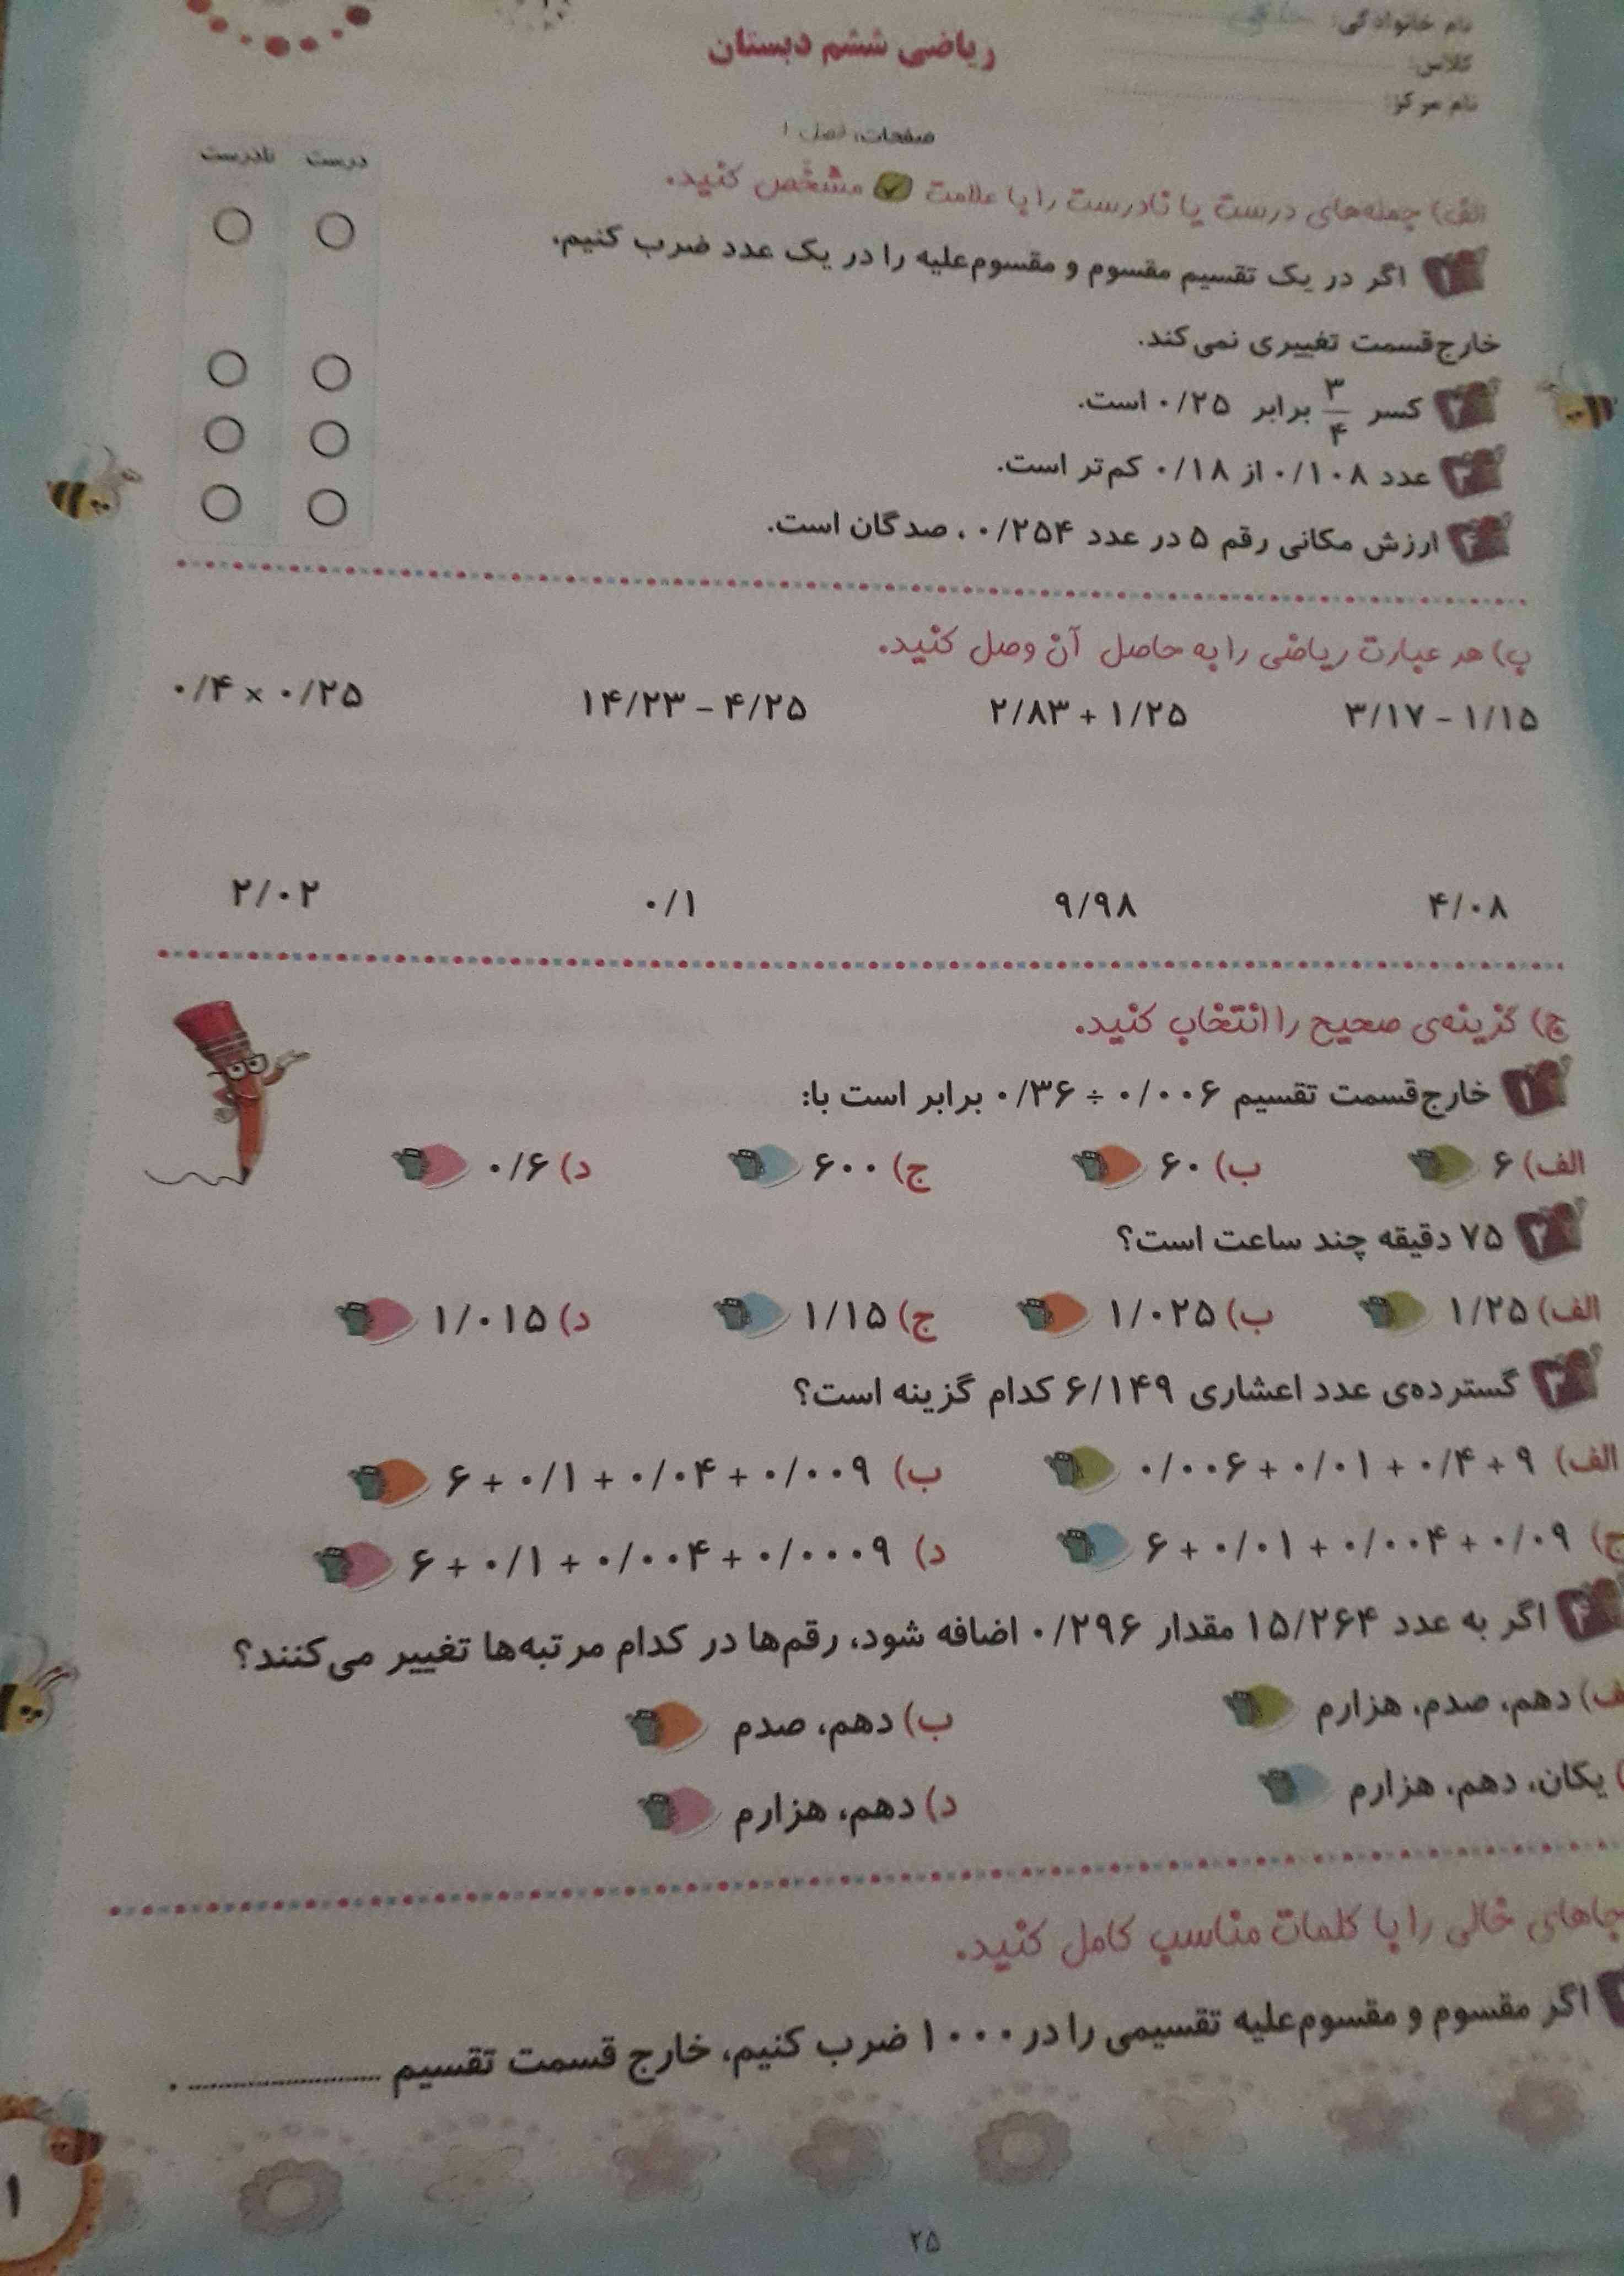 نام خانوادگی:
کلاس:
نام مرکز:
ریاضی ششم دبستان
صفحات، فصل ۱
درست نادرست
الف) جمله‌های درست یا نادرست را با علامت ✓ مشخص کنید.
۱ اگر در یک تقسیم مقسوم و مقسوم‌علیه را در یک عدد ضرب کنیم،
خارج‌قسمت تغییری نمی‌کند.
۲ کسر ۳/۴ برابر ۰/۲۵ است.
۳ عدد ۰/۱۰۸ از ۰/۱۸ کم‌تر است.
۴ ارزش مکانی رقم ۵ در عدد ۰/۲۵۴ ، صدگان است.
ب) هر عبارت ریاضی را به حاصل آن وصل کنید.
۳/۱۷ − ۱/۱۵ ۲/۸۳ + ۱/۲۵ ۱۴/۲۳ − ۴/۲۵ ۰/۴ × ۰/۲۵
۴/۰۸ ۹/۹۸ ۰/۱ ۲/۰۲
ج) گزینه‌ی صحیح را انتخاب کنید.
۱ خارج‌قسمت تقسیم ۰/۳۶ ÷ ۰/۰۰۶ برابر است با:
الف) ۶ ب) ۶۰ ج) ۶۰۰ د) ۰/۶
۲ ۷۵ دقیقه چند ساعت است؟
الف) ۱/۲۵ ب) ۱/۰۲۵ ج) ۱/۱۵ د) ۱/۰۱۵
۳ گسترده‌ی عدد اعشاری ۶/۱۴۹ کدام گزینه است؟
الف) ۰/۰۰۶ + ۰/۰۱ + ۰/۴ + ۹ ب) ۶ + ۰/۱ + ۰/۰۴ + ۰/۰۰۹
ج) ۶ + ۰/۰۱ + ۰/۰۰۴ + ۰/۰۹ د) ۶ + ۰/۱ + ۰/۰۰۴ + ۰/۰۰۰۹
۴ اگر به عدد ۱۵/۲۶۴ مقدار ۰/۲۹۶ اضافه شود، رقم‌ها در کدام مرتبه‌ها تغییر می‌کنند؟
ف) دهم، صدم، هزارم ب) دهم، صدم
) یکان، دهم، هزارم د) دهم، هزارم
جاهای خالی را با کلمات مناسب کامل کنید.
اگر مقسوم و مقسوم‌علیه تقسیمی را در ۱۰۰۰ ضرب کنیم، خارج قسمت تقسیم .................... .
۱
۲۵